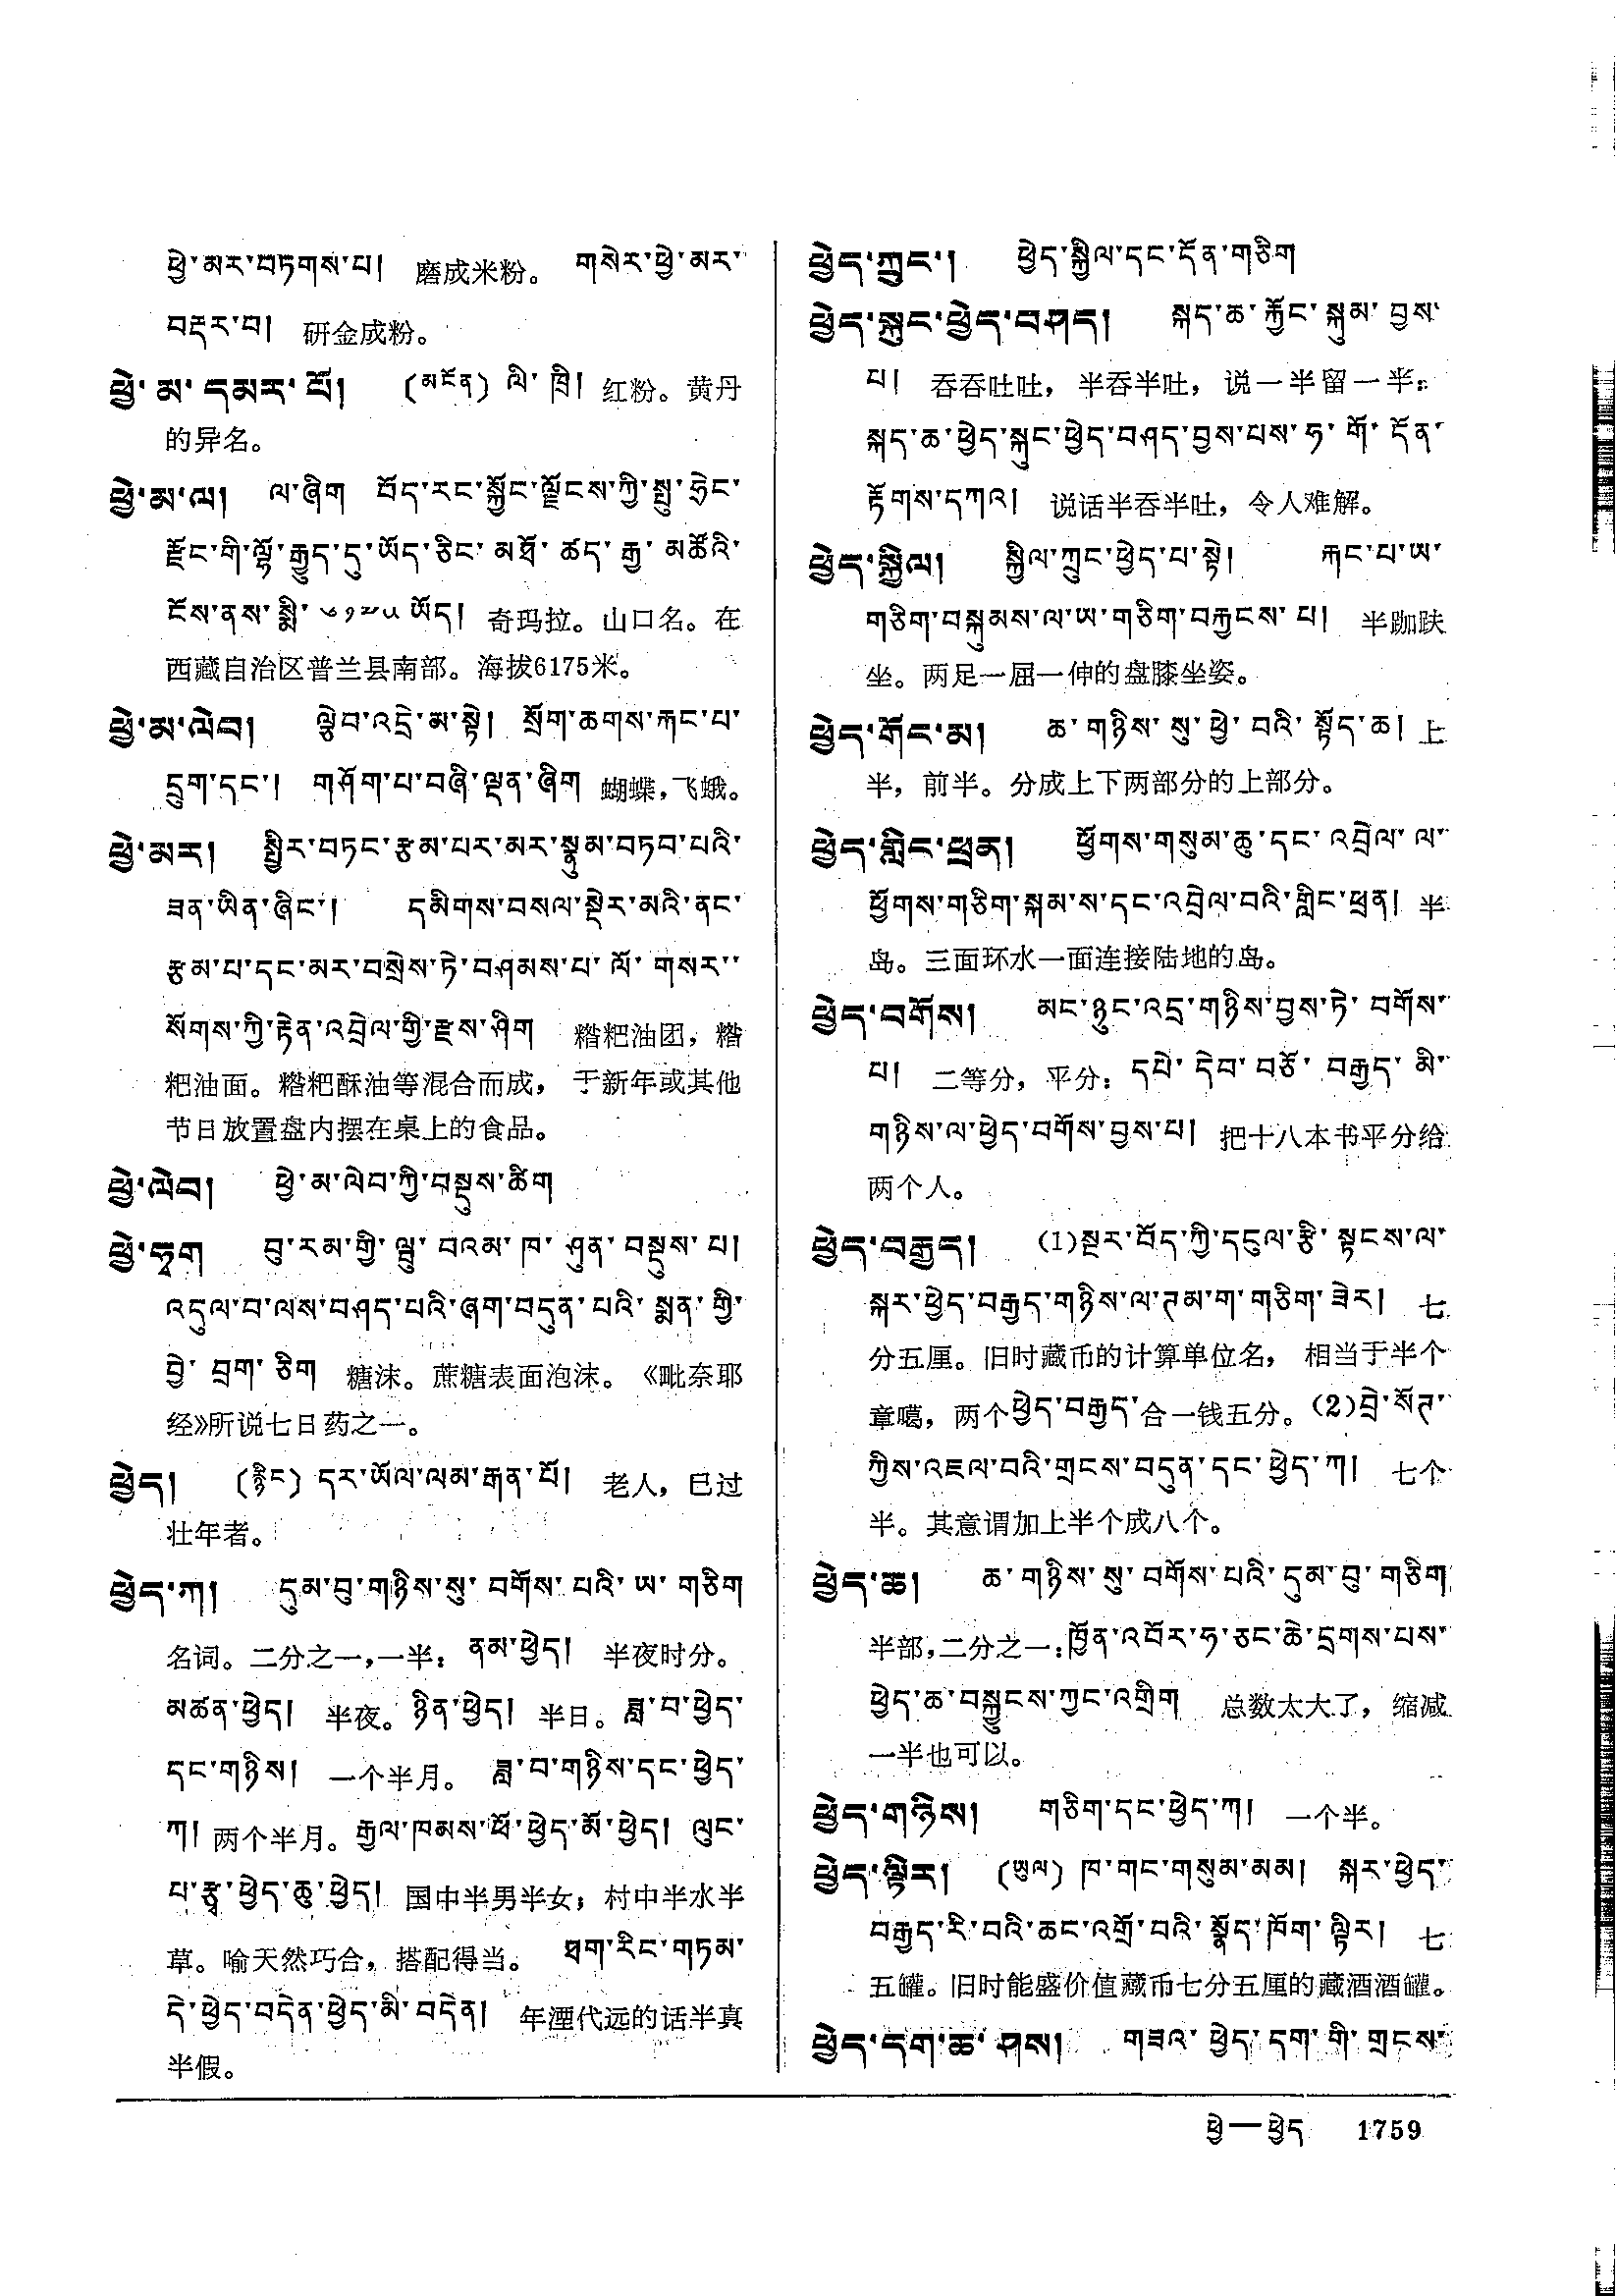 ཕྱེ་མར་བཏགས་པ།  磨成米粉。  གསེར་ཕྱེ་མར་
བརྡར་བ།  研金成粉。
ཕྱེ་མ་དམར་པོ།  (མངོན) ལི་ཁྲི། 红粉。黄丹
的异名。
ཕྱེ་མ་ལ།  ལ་ཞིག  བོད་རང་སྐྱོང་ལྗོངས་ཀྱི་སྤུ་ཧྲེང་
རྫོང་གི་ལྷོ་རྒྱུད་དུ་ཡོད་ཅིང་མཐོ་ཚད་རྒྱ་མཚོའི་
ངོས་ནས་སྨི་༦༡༧༥ ཡོད།  奇玛拉。山口名。在
西藏自治区普兰县南部。海拔6175米。
ཕྱེ་མ་ལེབ།  ལྕེབ་འདྲེ་མ་སྟེ།  སྲོག་ཆགས་རྐང་པ་
དྲུག་དང་།  གཤོག་པ་བཞི་ལྡན་ཞིག  蝴蝶，飞蛾。
ཕྱེ་མར།  སྤྱིར་བཏང་རྩམ་པར་མར་སྣུམ་བཏབ་པའི་
ཟན་ཡིན་ཞིང་།  དམིགས་བསལ་སྡེར་མའི་ནང་
རྩམ་པ་དང་མར་བསྲེས་ཏེ་བཤམས་པ་ལོ་གསར་
སོགས་ཀྱི་རྟེན་འབྲེལ་གྱི་རྫས་ཤིག  糌粑油团，糌
粑油面。糌粑酥油等混合而成，于新年或其他
节日放置盘内摆在桌上的食品。
ཕྱེ་ལེབ།  ཕྱེ་མ་ལེབ་ཀྱི་བསྡུས་ཚིག
ཕྱེ་ཧྭག  བུ་རམ་གྱི་ལྦུ་བའམ་ཁ་ཤུན་བསྡུས་པ།
འདུལ་བ་ལས་བཤད་པའི་ཞག་བདུན་པའི་སྨན་གྱི་
བྱེ་བྲག་ཅིག  糖沫。蔗糖表面泡沫。《毗奈耶
经》所说七日药之一。
ཕྱེད།  (རྙིང) དར་ཡོལ་ལམ་རྒན་པོ།  老人，已过
壮年者。
ཕྱེད་ཀ།  དུམ་བུ་གཉིས་སུ་བགོས་པའི་ཡ་གཅིག
名词。二分之一，一半：ནམ་ཕྱེད།  半夜时分。
མཚན་ཕྱེད།  半夜。ཉིན་ཕྱེད།  半日。ཟླ་བ་ཕྱེད་
དང་གཉིས།  一个半月。  ཟླ་བ་གཉིས་དང་ཕྱེད་
ཀ།  两个半月。རྒྱལ་ཁམས་ཕོ་ཕྱེད་མོ་ཕྱེད།  ལུང་
པ་རྩྭ་ཕྱེད་ཆུ་ཕྱེད།  国中半男半女；村中半水半
草。喻天然巧合，搭配得当。  ཐག་རིང་གཏམ་
དེ་ཕྱེད་བདེན་ཕྱེད་མི་བདེན།  年湮代远的话半真
半假。
ཕྱེད་ཀྲུང་།  ཕྱེད་སྐྱིལ་དང་དོན་གཅིག
ཕྱེད་སྐུང་ཕྱེད་བཤད།  སྐད་ཆ་རྐྱོང་སྐུམ་བྱས་
པ།  吞吞吐吐，半吞半吐，说一半留一半：
སྐད་ཆ་ཕྱེད་སྐུང་ཕྱེད་བཤད་བྱས་པས་ཧ་གོ་དོན་
རྟོགས་དཀའ།  说话半吞半吐，令人难解。
ཕྱེད་སྐྱིལ།  སྐྱིལ་ཀྲུང་ཕྱེད་པ་སྟེ།  རྐང་པ་ཡ་
གཅིག་བསྐུམས་ལ་ཡ་གཅིག་བརྐྱངས་པ།  半跏趺
坐。两足一屈一伸的盘膝坐姿。
ཕྱེད་གོང་མ།  ཆ་གཉིས་སུ་ཕྱེ་བའི་སྟོད་ཆ།  上
半，前半。分成上下两部分的上部分。
ཕྱེད་གླིང་ཕྲན།  ཕྱོགས་གསུམ་ཆུ་དང་འབྲེལ་ལ་
ཕྱོགས་གཅིག་སྐམ་ས་དང་འབྲེལ་བའི་གླིང་ཕྲན།  半
岛。三面环水一面连接陆地的岛。
ཕྱེད་བགོས།  མང་ཉུང་འདྲ་གཉིས་བྱས་ཏེ་བགོས་
པ།  二等分，平分：དཔེ་དེབ་བཅོ་བརྒྱད་མི་
གཉིས་ལ་ཕྱེད་བགོས་བྱས་པ།  把十八本书平分给
两个人。
ཕྱེད་བརྒྱད།  (1)སྔར་བོད་ཀྱི་དངུལ་རྩི་སྟངས་ལ་
སྐར་ཕྱེད་བརྒྱད་གཉིས་ལ་ཊམ་ག་གཅིག་ཟེར།  七
分五厘。旧时藏币的计算单位名，相当于半个
章噶，两个ཕྱེད་བརྒྱད་合一钱五分。(2)བྲེ་སོཊ་
ཀྱིས་འཇལ་བའི་གྲངས་བདུན་དང་ཕྱེད་ཀ།  七个
半。其意谓加上半个成八个。
ཕྱེད་ཆ།  ཆ་གཉིས་སུ་བགོས་པའི་དུམ་བུ་གཅིག
半部，二分之一：ཁྱོན་འབོར་ཧ་ཅང་ཆེ་དྲགས་པས་
ཕྱེད་ཆ་བསྐྱུངས་ཀྱང་འགྲིག  总数太大了，缩减
一半也可以。
ཕྱེད་གཉིས།  གཅིག་དང་ཕྱེད་ཀ།  一个半。
ཕྱེད་ལྟིར།  (ཡུལ) ཁ་གང་གསུམ་མམ།  སྐར་ཕྱེད་
བརྒྱད་རི་བའི་ཆང་འགྲོ་བའི་སྣོད་ཁོག་ལྟིར།  七
五罐。旧时能盛价值藏币七分五厘的藏酒酒罐。
ཕྱེད་དག་ཆ་ཤས།  གཟའ་ཕྱེད་དག་གི་གྲངས་
ཕྱེ—ཕྱེད  1759